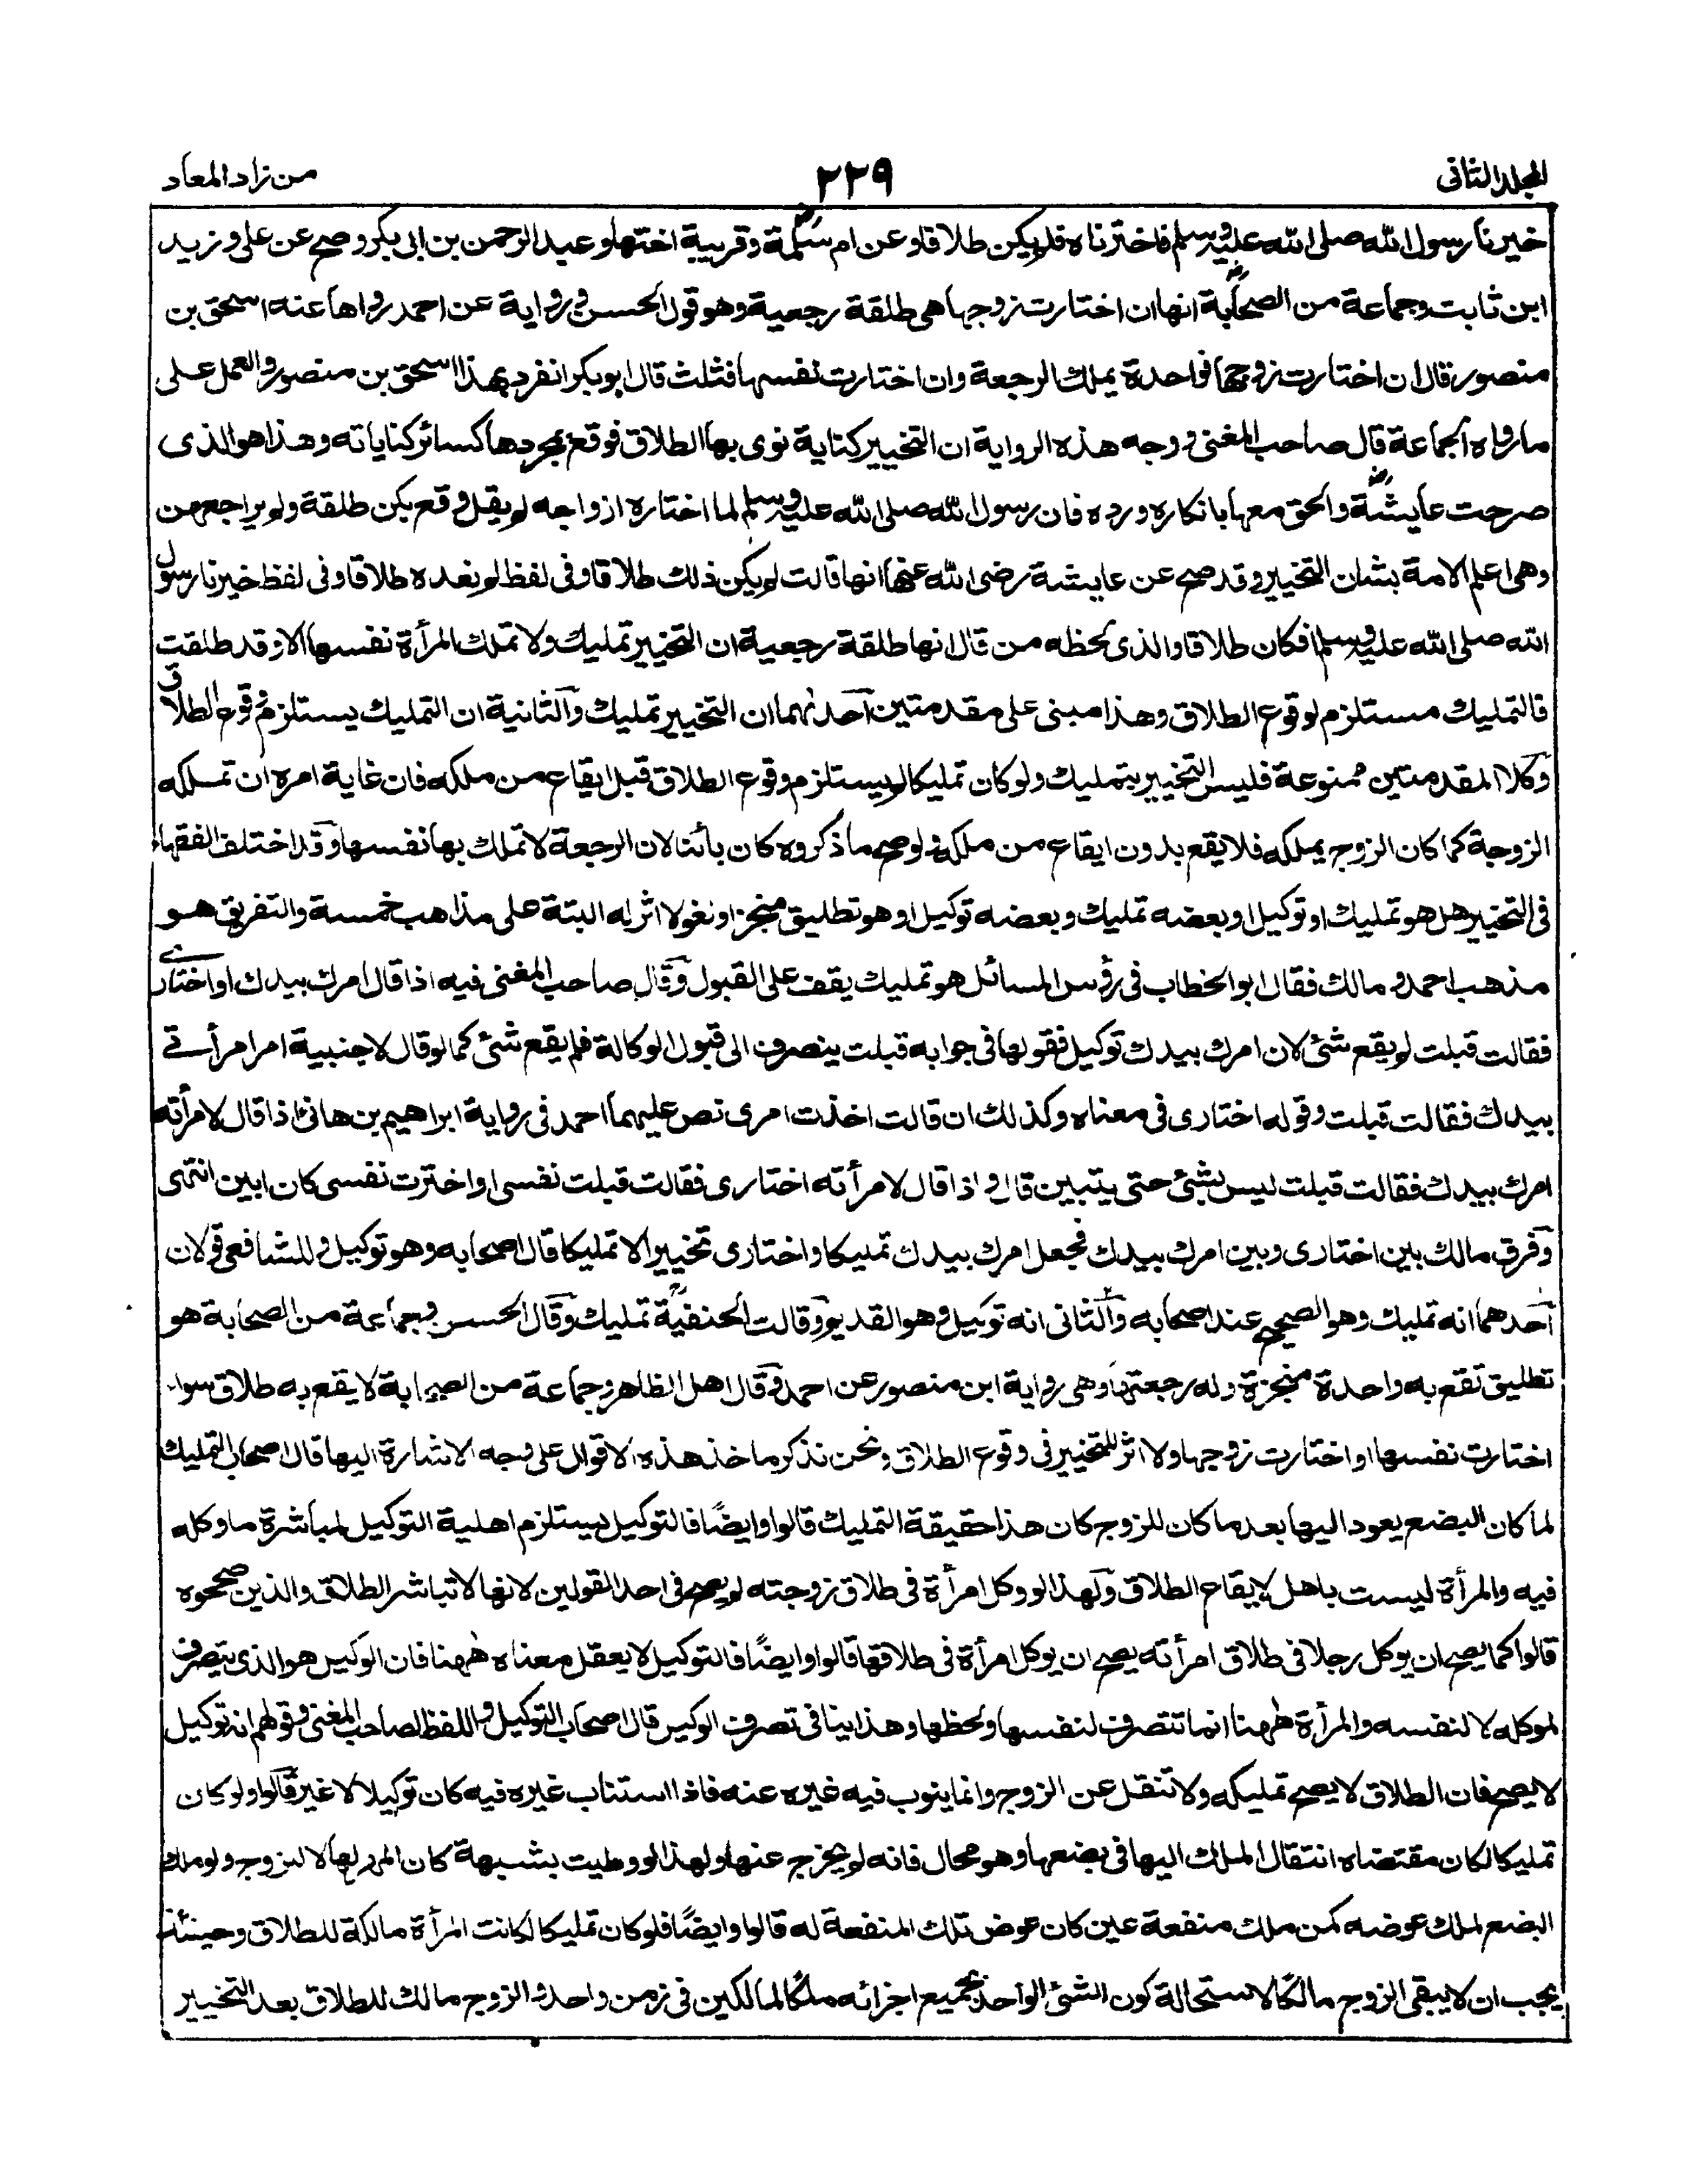 المجلد الثانى
٢٢٩
من زاد المعاد
خيرنا رسول الله صلى الله عليه وسلم فاخترناه فلم يكن طلاقا وعن ام سلمة وقريبة اختها وعبد الرحمن بن ابى بكر وصح عن على وزيد
ابن ثابت وجماعة من الصحابة انها ان اختارت زوجها هى طلقة رجعية وهو قول الحسن ورواية عن احمد رواها عنه اسحق بن
منصور قال ان اختارت زوجها فواحدة يملك الرجعة وان اختارت نفسها فثلث قال ابو بكر انفرد بهذا اسحق بن منصور والعمل على
ما رواه الجماعة قال صاحب المغنى ووجه هذه الرواية ان التخيير كناية نوى بها الطلاق فوقع بمجردها كسائر كناياته وهذا هو الذى
صرحت عايشة والحق معها بانكاره ورده فان رسول الله صلى الله عليه وسلم لما اختاره ازواجه لم يقل وقع بكن طلقة ولم يراجعهن
وهى اعلم الامة بشان التخيير وقد صح عن عايشة رضى الله عنها انها قالت لم يكن ذلك طلاقا وفى لفظ لم نعده طلاقا وفى لفظ خيرنا رسول
الله صلى الله عليه وسلم افكان طلاقا والذى لحظه من قال انها طلقة رجعية ان التخيير تمليك ولا تملك المرأة نفسها الا وقد طلقت
فالتمليك مستلزم لوقوع الطلاق وهذا مبنى على مقدمتين احدٰهما ان التخيير تمليك والثانية ان التمليك يستلزم وقوع الطلاق
وكلا المقدمتين ممنوعة فليس التخيير بتمليك ولو كان تمليكا لم يستلزم وقوع الطلاق قبل ايقاع من ملكه فان غاية امره ان تملكه
الزوجة كما كان الزوج يملكه فلا يقع بدون ايقاع من ملكه ولو صح ما ذكروه كان بائنا لان الرجعة لا تملك بها نفسها وقد اختلف الفقهاء
فى التخيير هل هو تمليك او توكيل او بعضه تمليك وبعضه توكيل او هو تطليق منجز او لغو لا اثر له البتة على مذاهب خمسة والتفريق هو
مذهب احمد و مالك فقال ابو الخطاب فى رؤس المسائل هو تمليك يقف على القبول وقال صاحب المغنى فيه اذا قال امرك بيدك او اختارى
فقالت قبلت لم يقع شئ لان امرك بيدك توكيل فقولها فى جوابه قبلت ينصرف الى قبول الوكالة فلم يقع شئ كما لو قال لاجنبية امر امرأتى
بيدك فقالت قبلت وقوله اختارى فى معناه وكذلك ان قالت اخذت امرى نص عليهما احمد فى رواية ابراهيم بن هانئ اذا قال لامرأته
امرك بيدك فقالت قبلت ليس بشئ حتى يتبين قال و اذا قال لامرأته اختارى فقالت قبلت نفسى او اخترت نفسى كان ابين انتهى
وفرق مالك بين اختارى وبين امرك بيدك فجعل امرك بيدك تمليكا واختارى تخييرا لا تمليكا قال اصحابه وهو توكيل وللشافعى قولان
احدهما انه تمليك وهو الصحيح عند اصحابه والثانى انه توكيل وهو القديم وقالت الحنفية تمليك وقال الحسن وجماعة من الصحابة هو
تطليق تقع به واحدة منجزة وله رجعتها وهى رواية ابن منصور عن احمد وقال اهل الظاهر وجماعة من الصحابة لا يقع به طلاق سواء
اختارت نفسها او اختارت زوجها ولا اثر للتخيير فى وقوع الطلاق ونحن نذكر ماخذ هذه الاقوال على وجه الاشارة اليها قال اصحاب التمليك
لما كان البضع يعود اليها بعد ما كان للزوج كان هذا حقيقة التمليك قالوا وايضًا فالتوكيل يستلزم اهلية التوكيل لمباشرة ما وكله
فيه والمرأة ليست باهل لايقاع الطلاق ولهذا لو وكل امرأة فى طلاق زوجته لم يصح فى احد القولين لانها لا تباشر الطلاق والذين صححوه
قالوا كما يصح ان يوكل رجلا فى طلاق امرأته يصح ان يوكل امرأة فى طلاقها قالوا وايضًا فالتوكيل لا يعقل معناه ههنا فان الوكيل هو الذى يتصرف
لموكله لا لنفسه والمرأة ههنا انما تتصرف لنفسها ولحظها وهذا ينافى تصرف الوكيل قال اصحاب التوكيل واللفظ لصاحب المغنى وقولهم انه توكيل
لا يصح فان الطلاق لا يصح تمليكه ولا تنقل عن الزوج وانما ينوب فيه غيره عنه فاذا استناب غيره فيه كان توكيلا لا غير قالوا ولو كان
تمليكا لكان مقتضاه انتقال الملك اليها فى بضعها وهو محال فانه لم يخرج عنها ولهذا لو وطيت بشبهة كان المهر لها لا للزوج ولو ملك
البضع لملك عوضه كمن ملك منفعة عين كان عوض تلك المنفعة له قالوا وايضًا فلو كان تمليكا لكانت المرأة مالكة للطلاق وحينئذ
يجب ان لا يبقى الزوج مالكًا لاستحالة كون الشئ الواحد بجميع اجزائه ملكًا لمالكين فى زمن واحد والزوج مالك للطلاق بعد التخيير